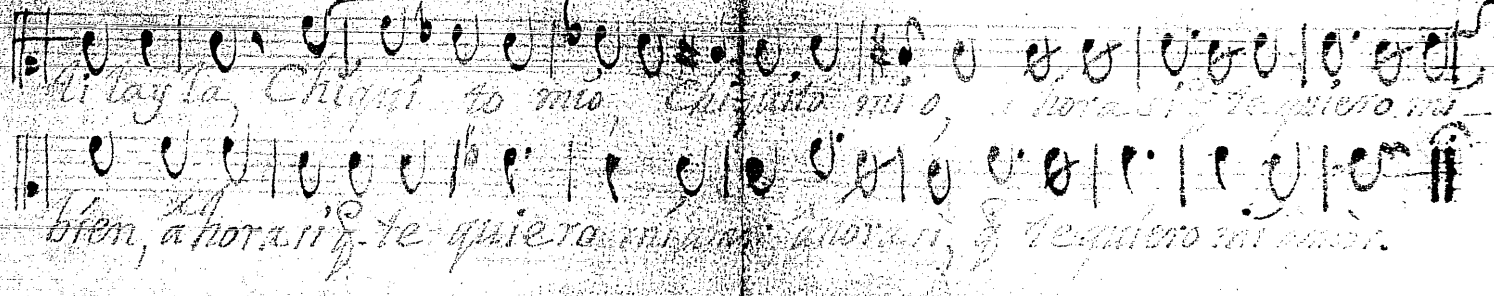 li lay la, Chiqui to mio, Chiquito mi o, ahora si q̃ te quiero mi
bien, ahora si q̃ te quiero mi amor ahora si, q̃ te quiero mi amòr.